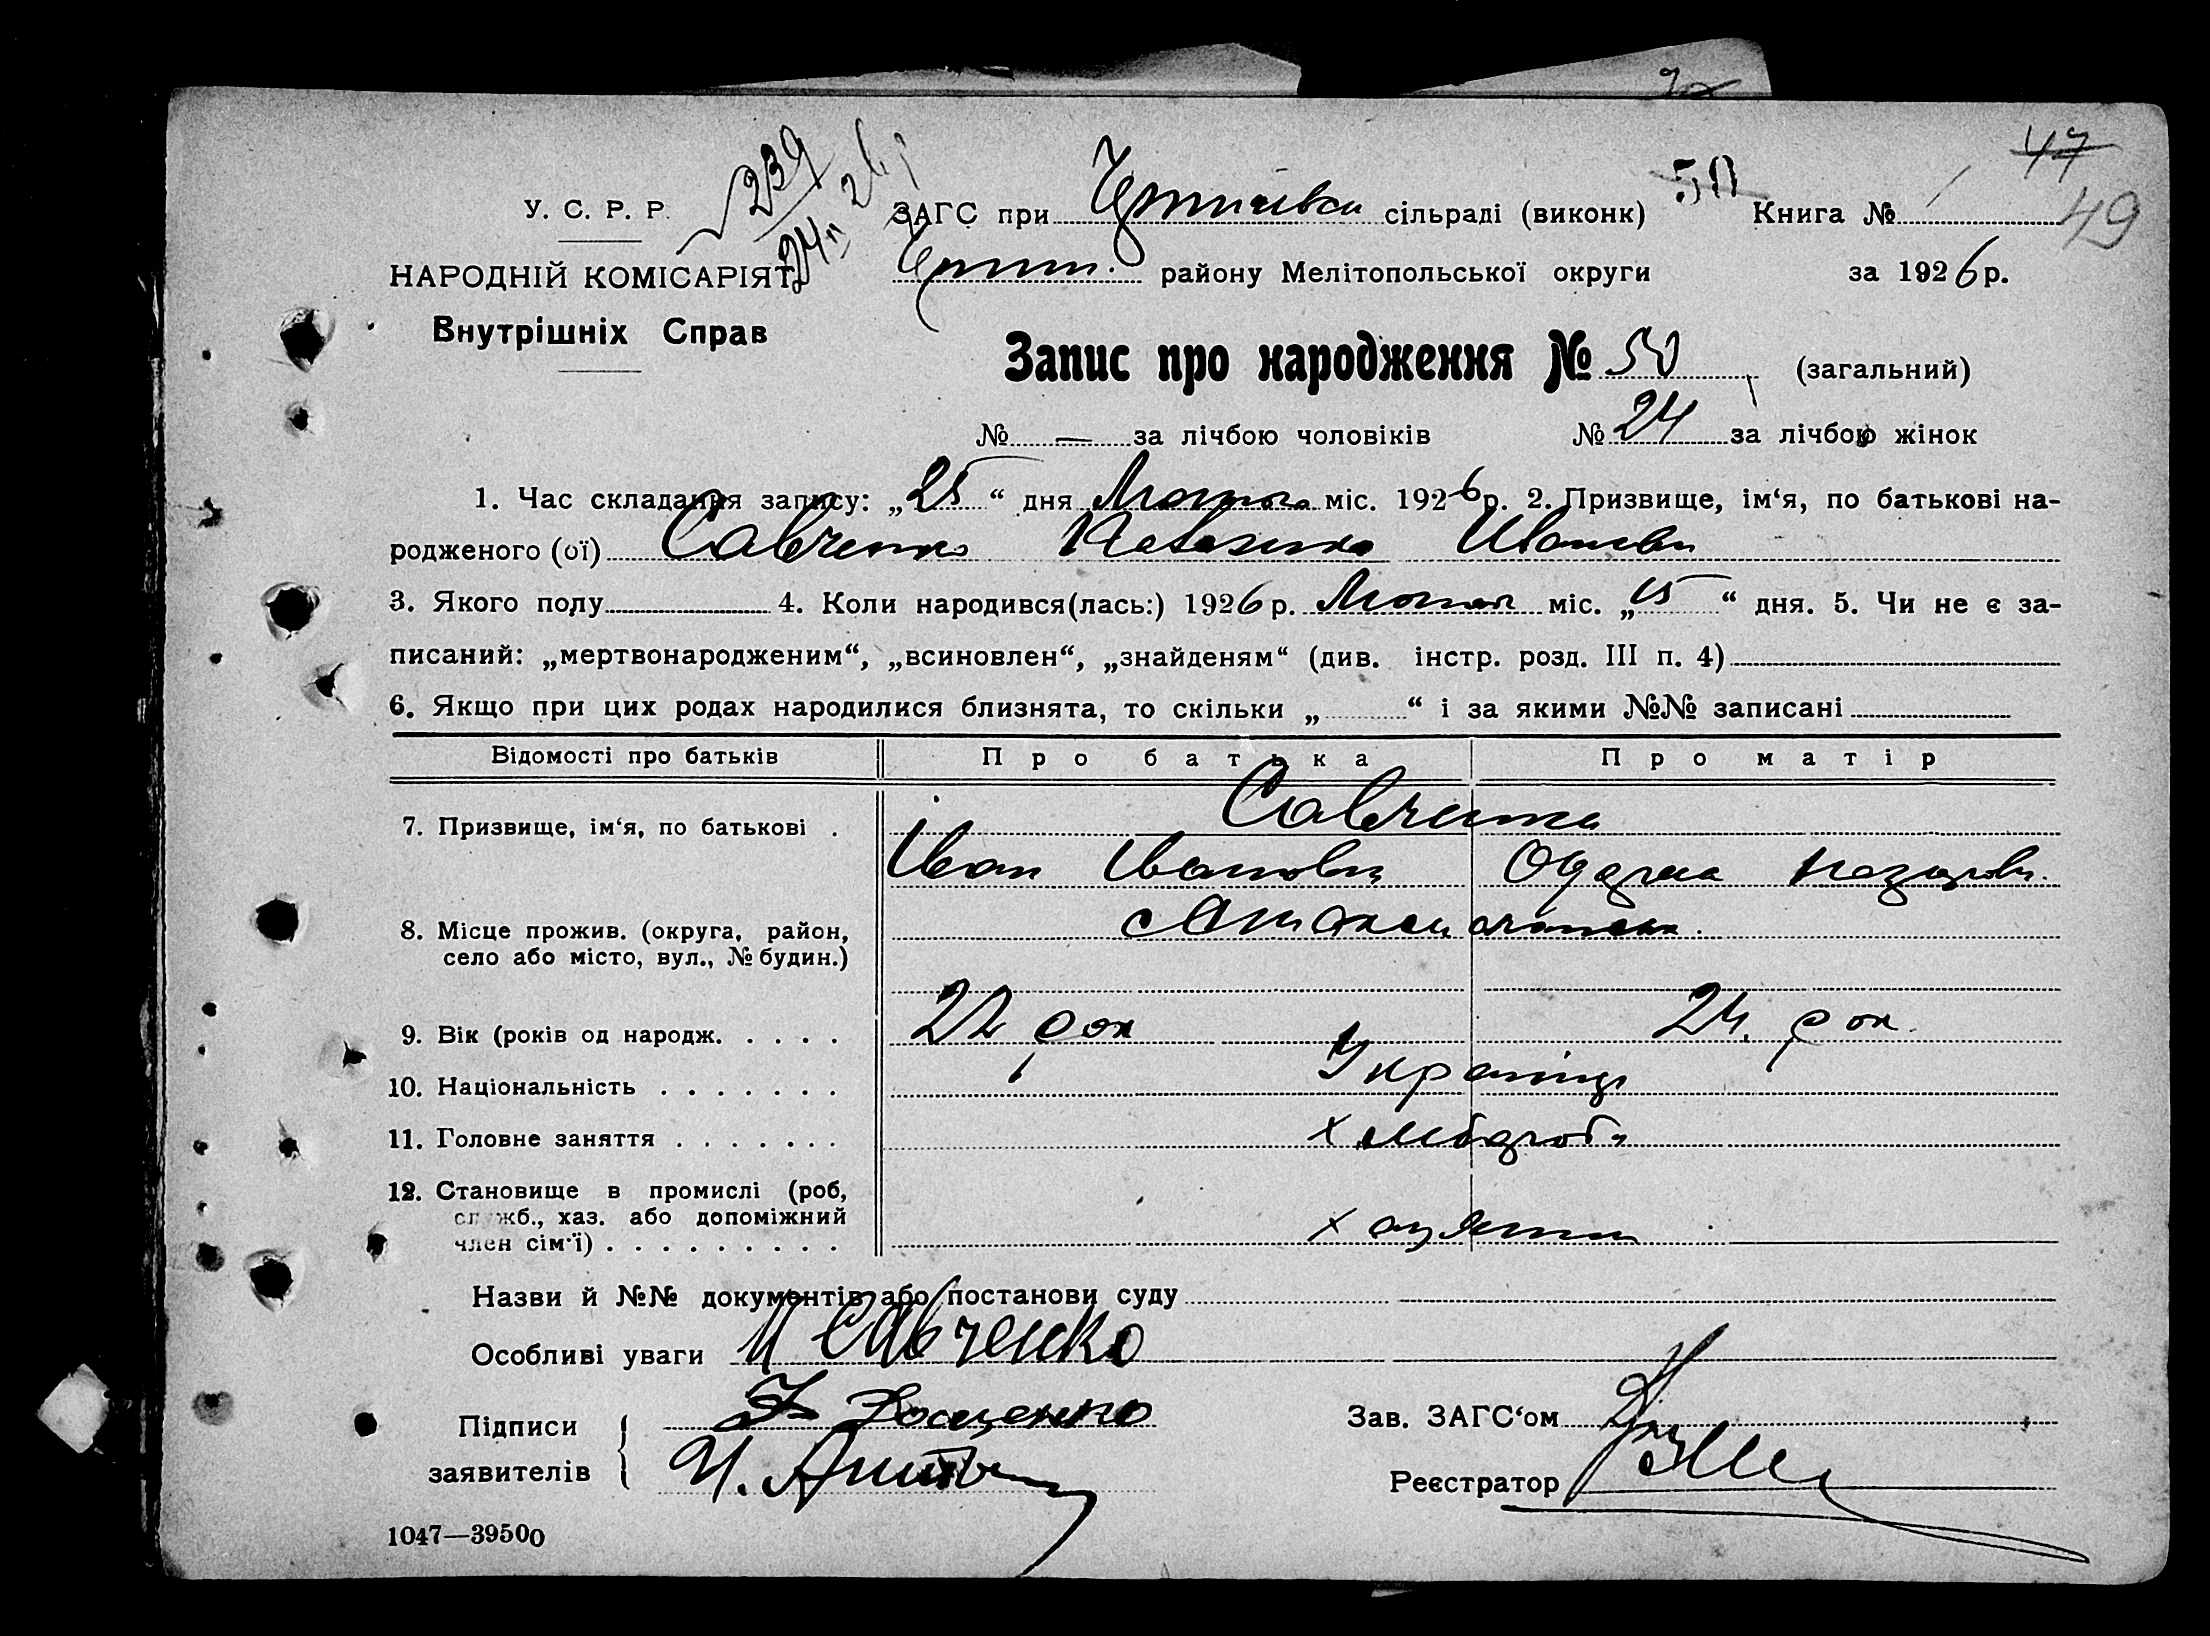 47
49
У. С. Р. Р.
239
ЗАГС при сільраді (виконк) 50 Книга №
НАРОДНІЙ КОМІСАРІЯТ
району Мелітопольської округи за 1926 р.
Внутрішніх Справ
Запис про народження № 50 (загальний)
№ — за лічбою чоловіків № 24 за лічбою жінок
1. Час складання запису: „25“ дня Лютого міс. 1926 р. 2. Призвище, ім‘я, по батькові на-
родженого (ої) Савченко Иванівн
3. Якого полу 4. Коли народився(лась:) 1926 р. Лютого міс. „15“ дня. 5. Чи не є за-
писаний: „мертвонародженим“, „всиновлен“, „знайденям“ (див. інстр. розд. III п. 4)
6. Якщо при цих родах народилися близнята, то скільки „ “ і за якими №№ записані
Відомості про батьків Про батька Про матір
7. Призвище, ім‘я, по батькові . Савченко
Іван Іванович
8. Місце прожив. (округа, район,
село або місто, вул., № будин.)
9. Вік (років од народж. . . . . 22 рок 24. рок.
10. Національність . . . . . . . Україніці
11. Головне заняття . . . . . . . хлібороби
12. Становище в промислі (роб,
служб., хаз. або допоміжний
член сім‘ї) . . . . . . . . .
Назви й №№ документів або постанови суду
Особливі уваги И Савченко
Підписи
заявителів
Зав. ЗАГС‘ом
Реєстратор
1047—39500